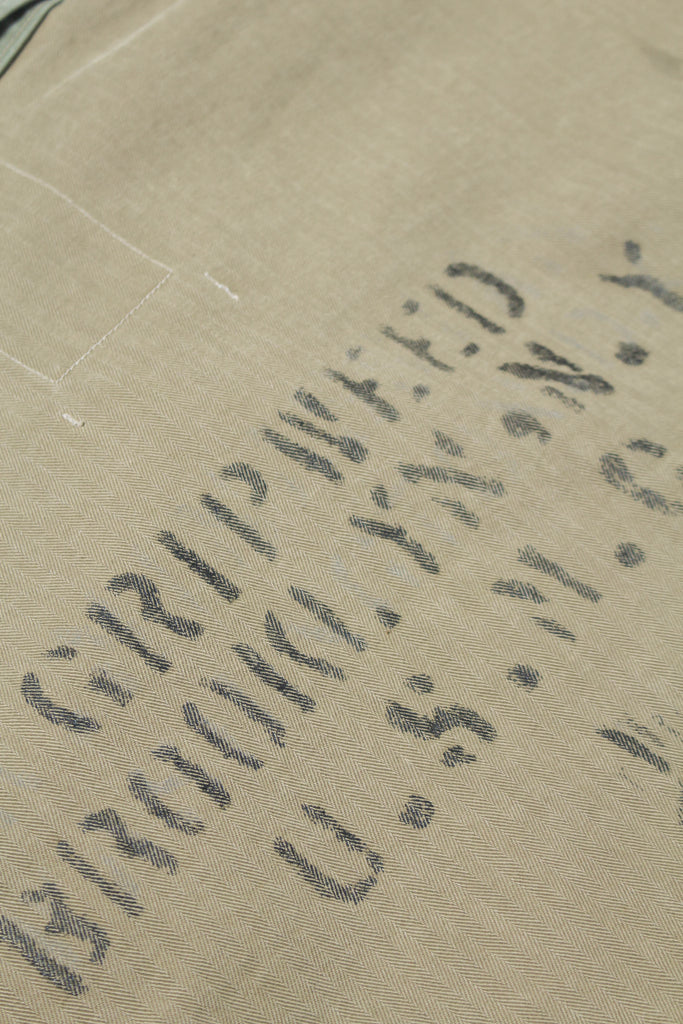 GRIPWEED
BROOKLYN·N.Y
U.S.M.C